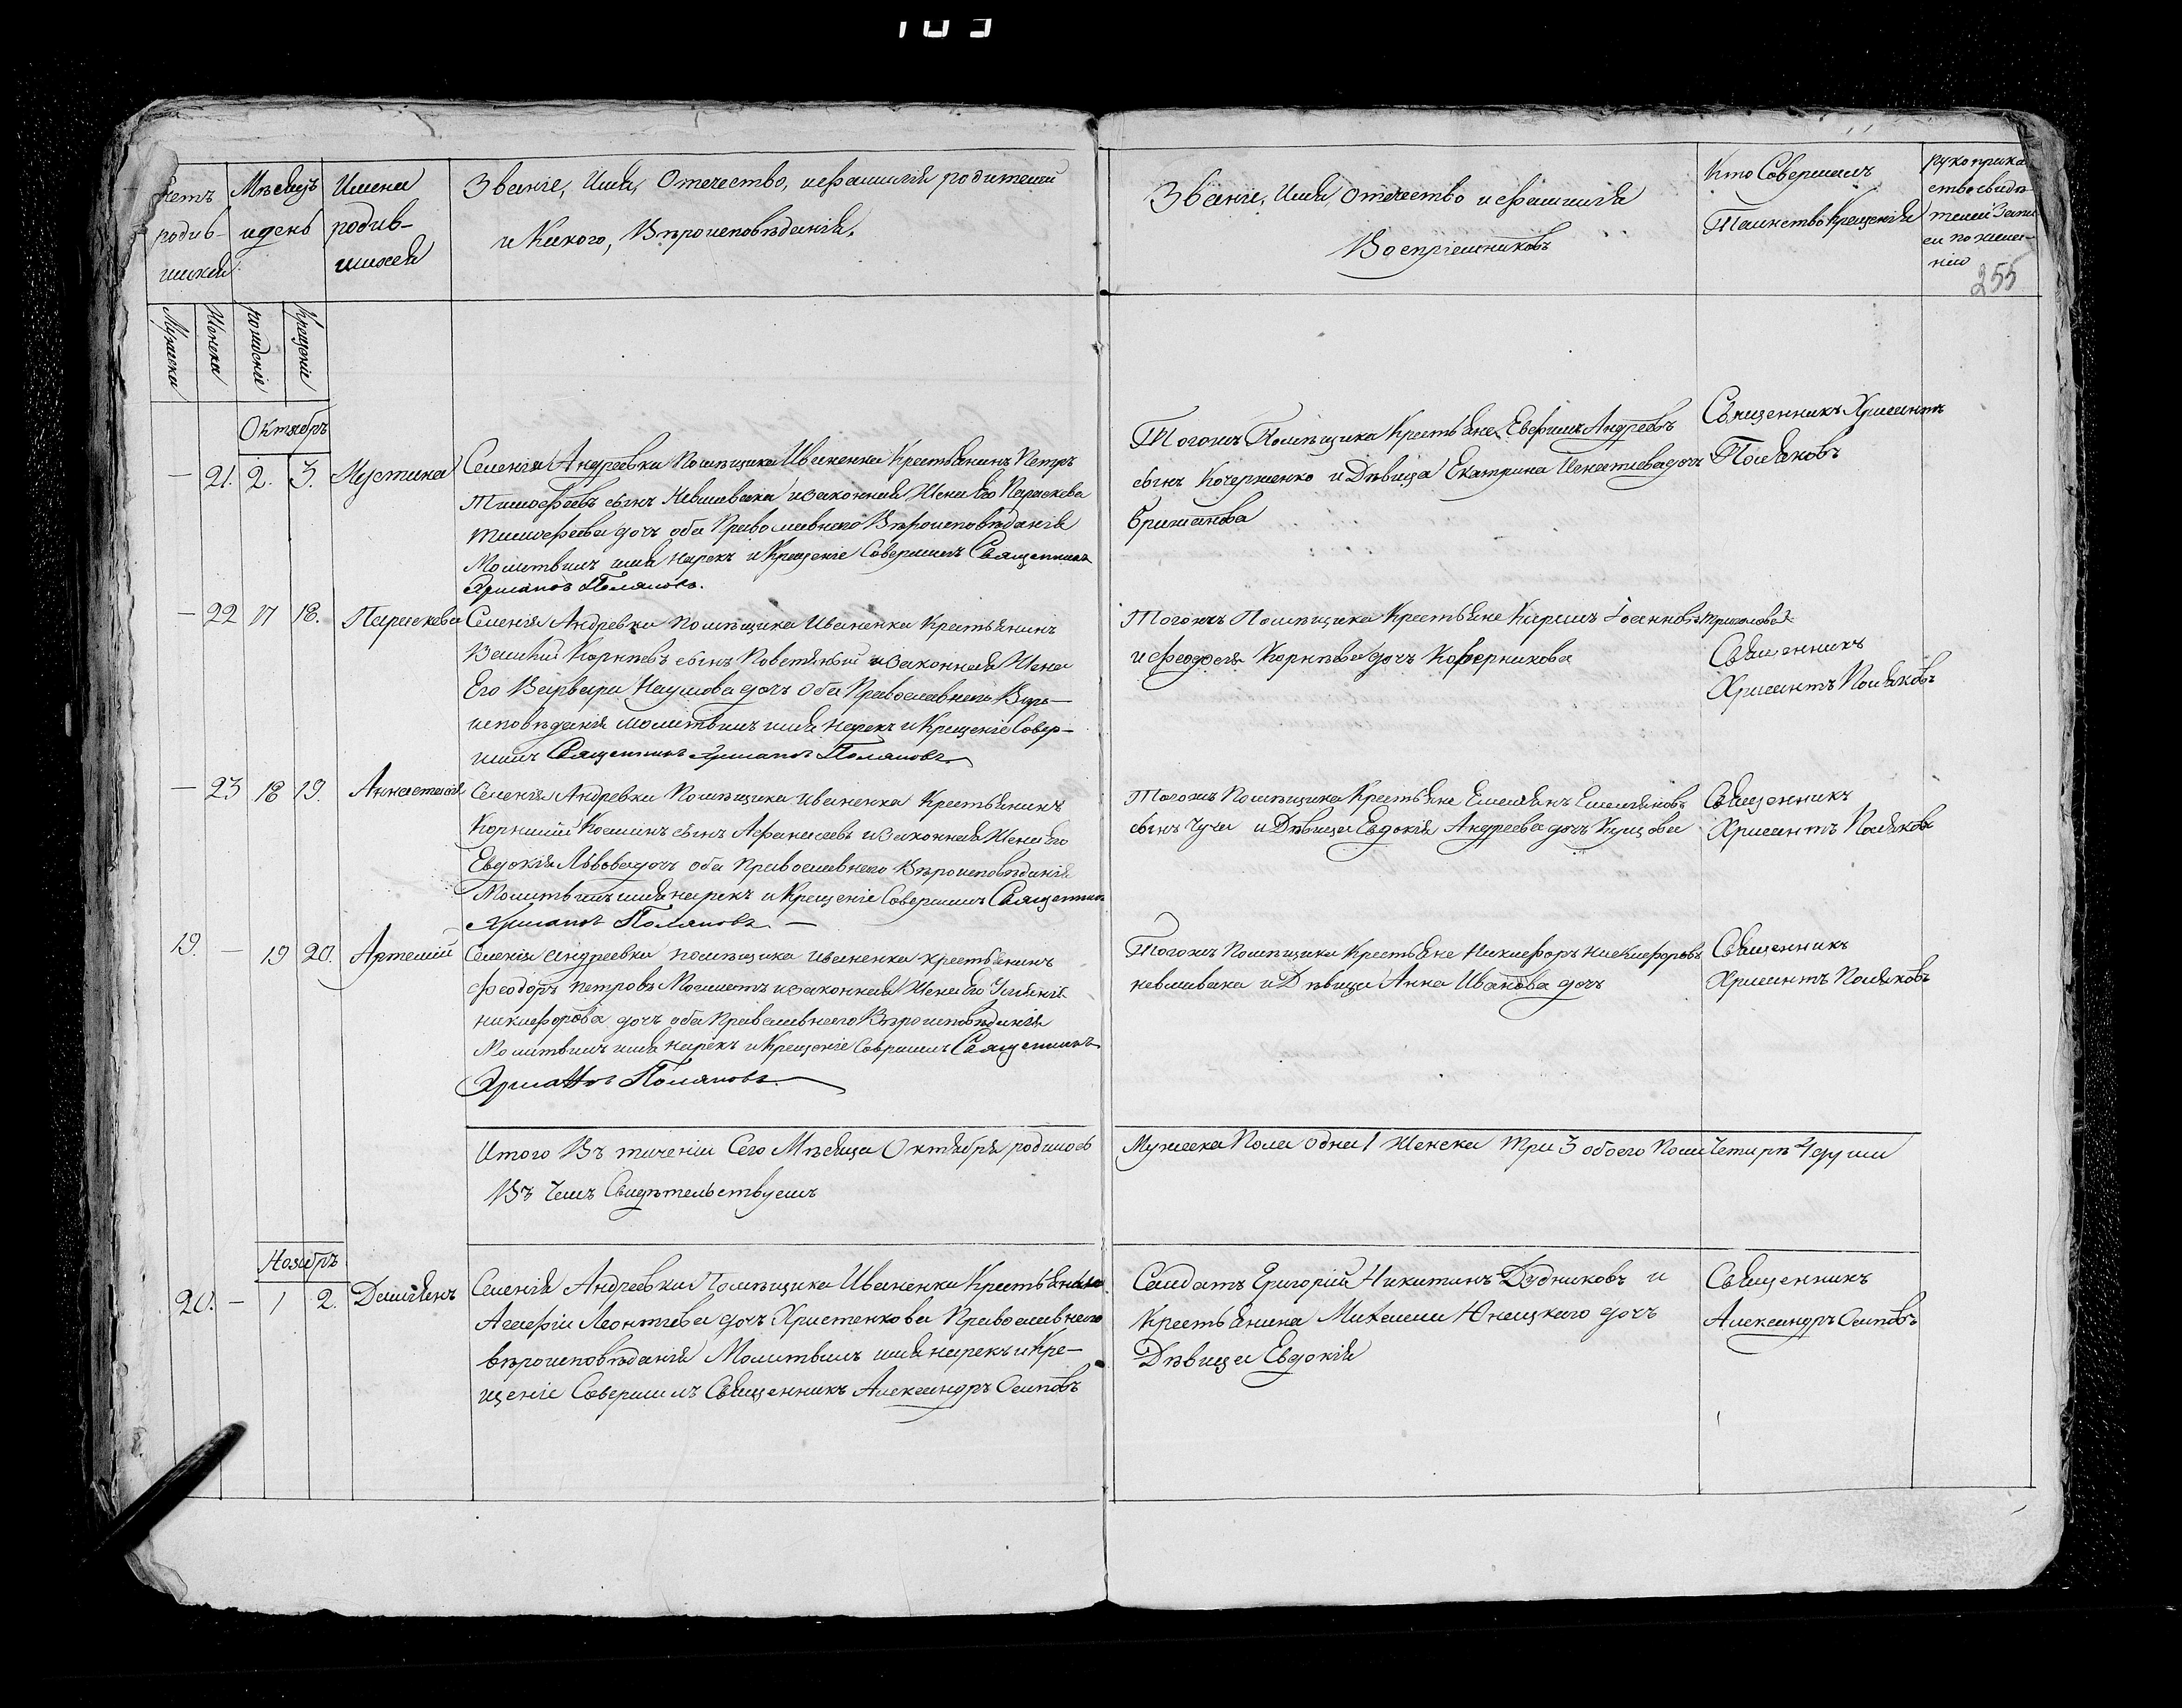 103
Счетъ родив-шихся
Мѣсяцъ и день
Имена родив-шихся
Званіе, Имя, Отечество, и фамилія родителей
и Какого, Вѣроисповѣданія.
Званіе, Имя, Отечество и фамилія
Воспріемниковъ
Кто Совершалъ
Таинство Крещенія
рукоприка
ство свидѣ
телей Запи
си по жела-
нію
255
Мужеска
Женска
рожденіе
Крещеніе
Октябрь
— 21. 2. 3. Иустина
Селенія Андреевки Помѣщика Иваненка Крестьянинъ Петръ
Тимофеевъ сынъ Невшивака и законная Жена Его Параскева
Тимофеева дочь оба Православнаго Вѣроисповѣданія
Молитвилъ имя нарекъ и Крещеніе Совершилъ Священникъ
Хрисанфъ Поляковъ.
Тогожъ Помѣщика Крестьяне Евфимъ Андреевъ
сынъ Кочерженко и Дѣвица Екатрина Игнатиева дочь
Священникъ Хрисантъ
Поляковъ
— 22 17 18. Параскева
Селенія Андревки Помѣщика Иваненка Крестьянинъ
Василій Корнѣевъ сынъ и законная Жена
Его Варвара Наумова дочь Оба Православнаго Вѣро-
исповѣданія молитвилъ имя нарекъ и Крещеніе Совер-
шилъ Священникъ Хрисанфъ Поляковъ
Тогожъ Помѣщика Крестьяне Іоанновъ
и феодосія Корнѣева дочь
Священникъ
Хрисантъ Поляковъ
— 23 18 19. Аннастасія
Селенія Андревки Помѣщика Иваненка Крестьянинъ
Корнилій Косминъ сынъ Афанасіевъ и законная Жена Его
Евдокія Львова дочь оба Православнаго Вѣроисповѣданія
Молитвилъ имя нарекъ и Крещеніе Совершилъ Священникъ
Хрисанфъ Поляковъ —
Тогожъ Помѣщика Крестьяне Емелянъ Емеляновъ
сынъ Чуча и Дѣвица Евдокія Андреева дочь Куцова
Священникъ
Хрисантъ Поляковъ
19. — 19 20. Артемій
Селенія Андреевки помѣщика Иваненка крестьянинъ
феодоръ петровъ и законная Жена Его Уліянія
никифорова дочь оба Православнаго Вѣроисповѣданія
Молитвилъ имя нарекъ и Крещеніе Совршилъ Священникъ
Хрисанфъ Поляковъ
Тогожъ Помѣщика Крестьяне Никифоръ Никифоровъ
невшивака и Дѣвица Анна Иванова дочь
Священникъ
Хрисантъ Поляковъ
Итого Въ тиченіи Сего Мѣсяца Октября родилось
Мужеска Пола одна 1 Женска Три 3 обоего Пола Четырѣ 4 души
Въ Чемъ Свидѣтельствуемъ
Ноябрь
20. — 1 2. Даміянъ
Селенія Андреевки Помѣщика Иваненка Крестьянки
Агафіи Леонтиева дочь Христенкова Православнаго
вѣроисповѣданія Молитвилъ имя нарекъ и Кре-
щеніе Совершилъ Священникъ Александръ Осиповъ
Салдатъ Григорій Никитинъ Дудниковъ и
Крестьянина Михаила Юницкаго дочь
Дѣвица Евдокія
Священникъ
Александръ Осиповъ